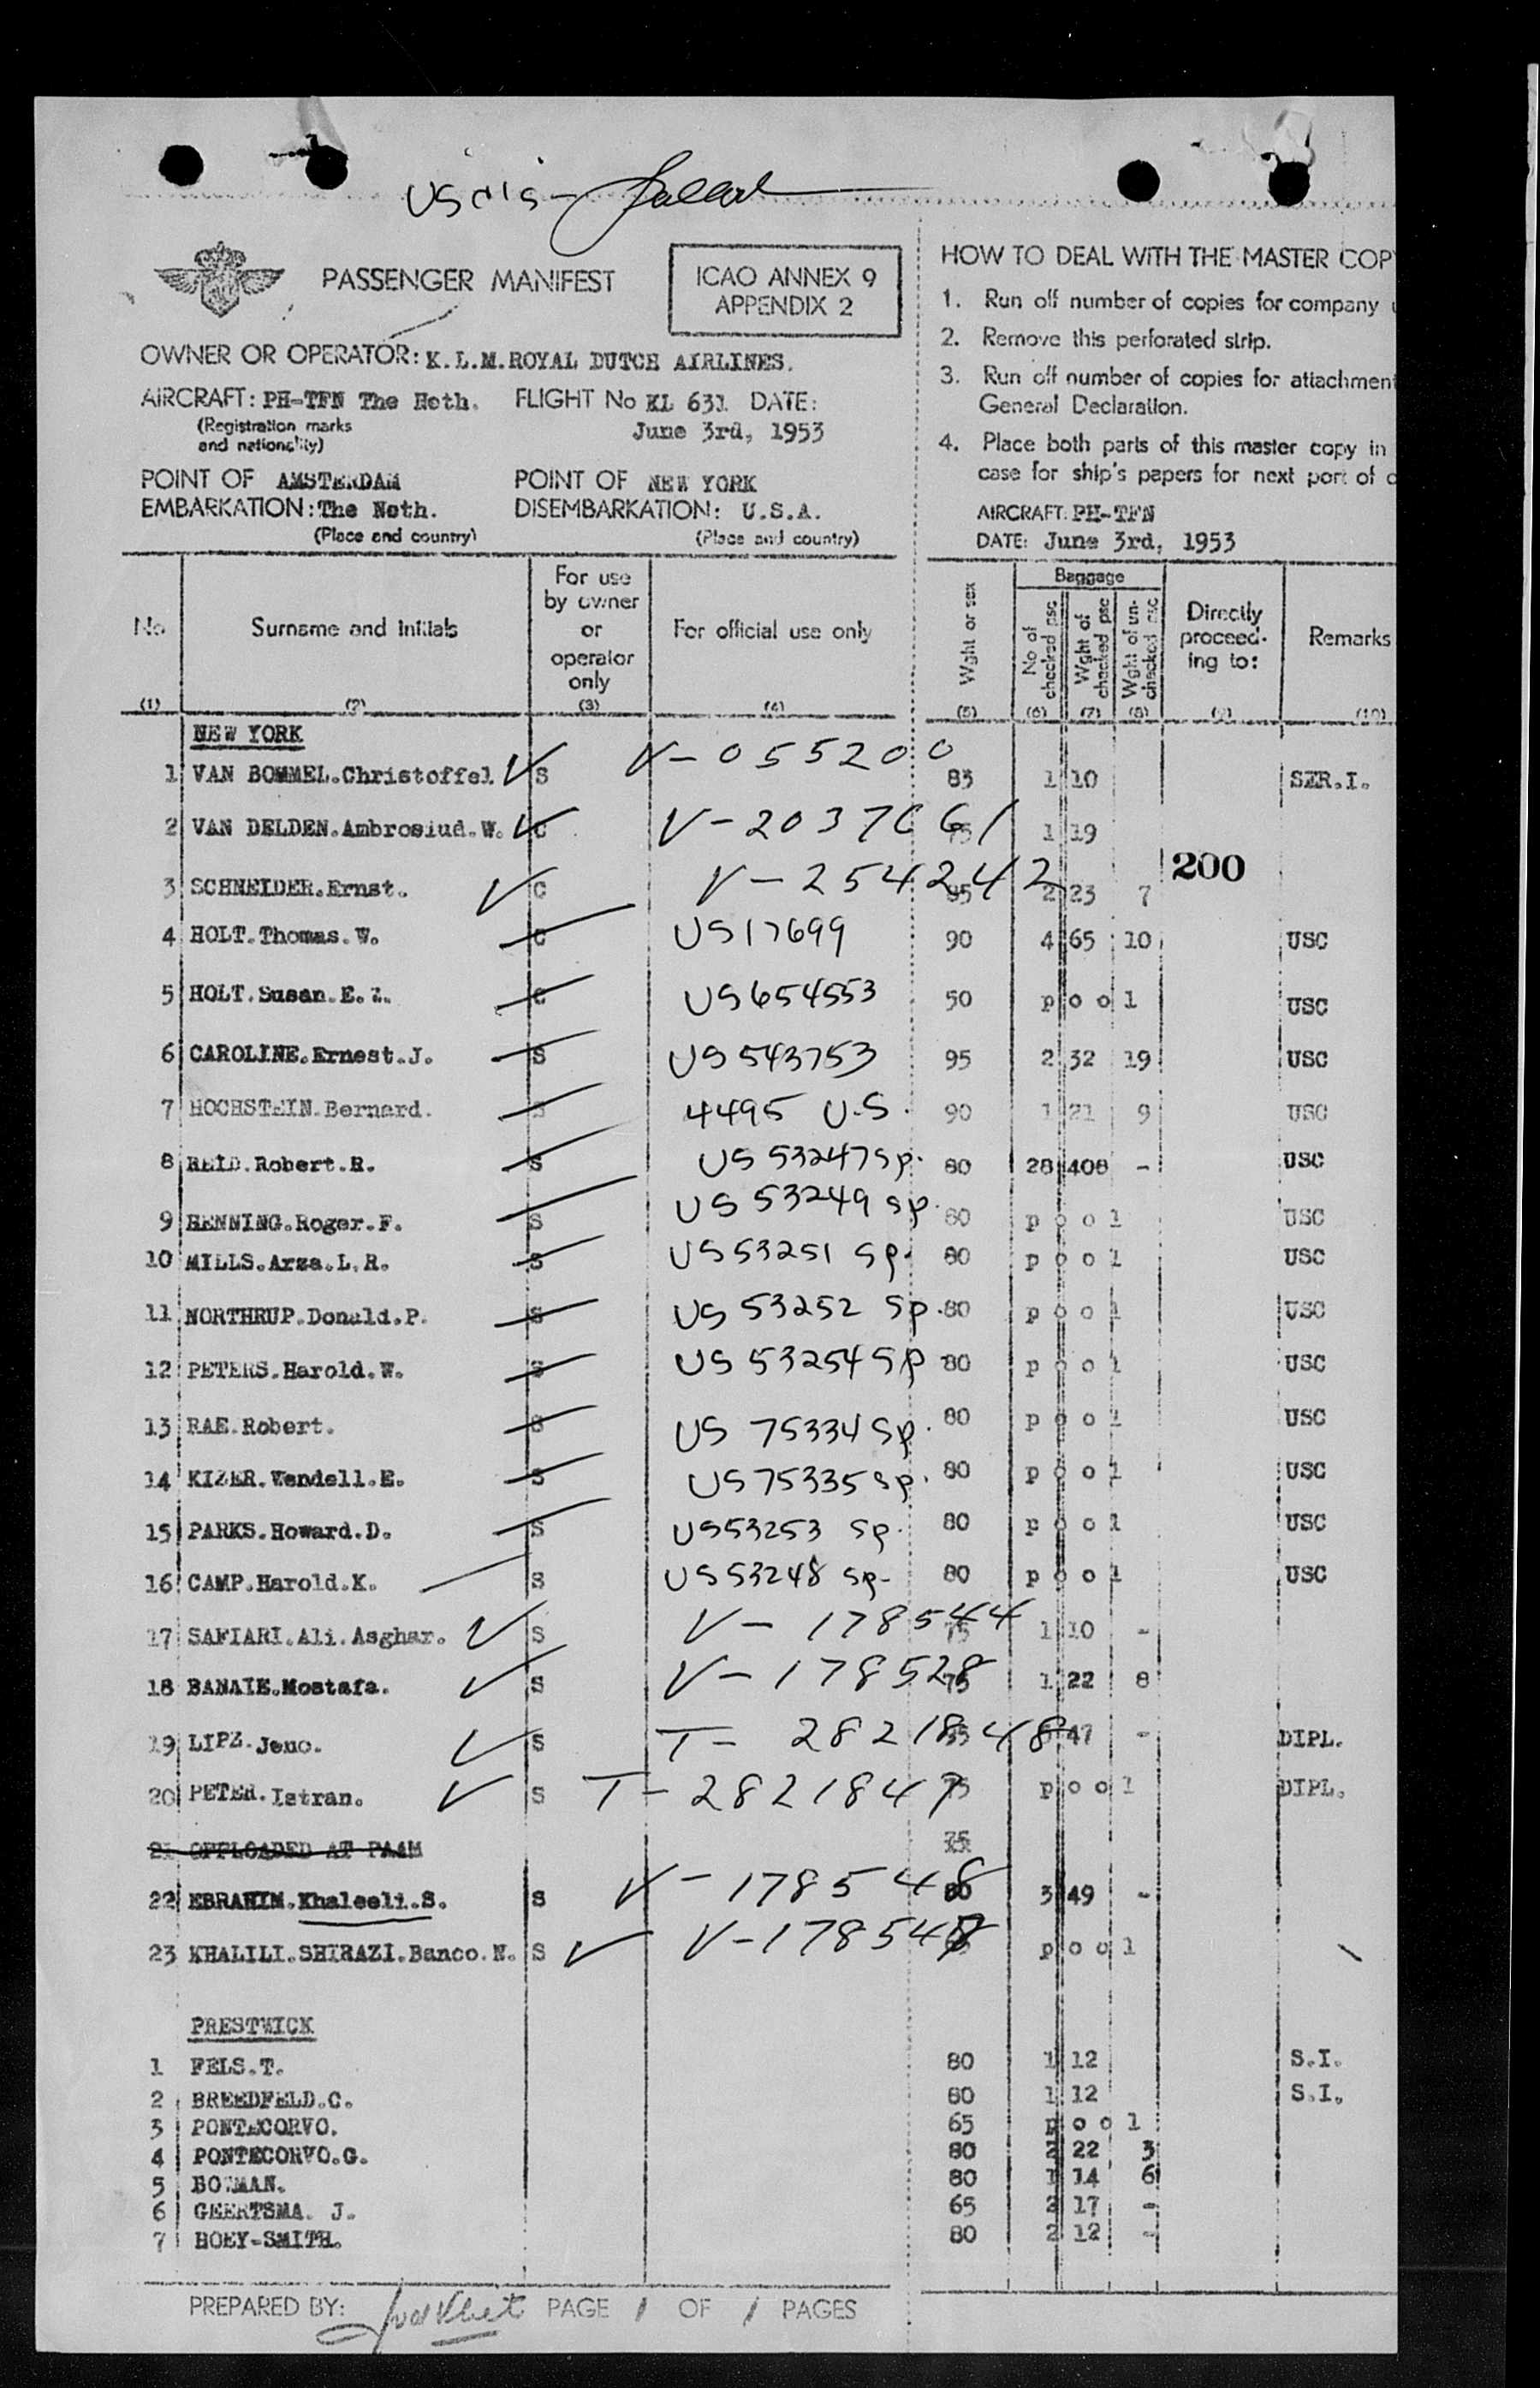 PASSENGER MANIFEST
ICAO ANNEX 9
APPENDIX 2
OWNER OR OPERATOR: K.L.M.ROYAL DUTCH AIRLINES.
AIRCRAFT: PH-TFN The Neth. FLIGHT No KL 631 DATE:
(Registration marks June 3rd, 1953
and nationality)
POINT OF AMSTERDAM POINT OF NEW YORK
EMBARKATION: The Neth. DISEMBARKATION: U.S.A.
(Place and country) (Place and country)
HOW TO DEAL WITH THE MASTER COP
1. Run off number of copies for company
2. Remove this perforated strip.
3. Run off number of copies for attachment
General Declaration.
4. Place both parts of this master copy in
case for ship's papers for next port of
AIRCRAFT: PH-TFN
DATE: June 3rd, 1953
No
(1)
Surname and initials
(2)
For use
by owner
or
operator
only
(3)
For official use only
(4)
Wght or sex
(5)
Baggage
No of checked psc
(6)
Wght of checked psc
(7)
Wght of un-checked psc
(8)
Directly
proceed-
ing to:
(9)
Remarks
(10)
NEW YORK
1 VAN BOMMEL.Christoffel S V-055200 83 1 10 SER.I.
2 VAN DELDEN.Ambrosiud.W. C V-2037661 75 1 19
200
3 SCHNEIDER.Ernst. C V-254242 95 2 23 7
4 HOLT.Thomas.W. C US17699 90 4 65 10 USC
5 HOLT.Susan.E. C US654553 50 pool USC
6 CAROLINE.Ernest.J. S US 543753 95 2 32 19 USC
7 HOCHSTEIN.Bernard. S 4495 U.S. 90 1 21 9 USC
8 REID.Robert.R. S US 53247 Sp. 80 28 408 - USC
9 HENNING.Roger.F. S US 53249 Sp. 80 pool USC
10 MILLS.Arza.L.R. S US 53251 Sp. 80 pool USC
11 NORTHRUP.Donald.P. S US 53252 Sp. 80 pool USC
12 PETERS.Harold.W. S US 53254 Sp 80 pool USC
13 RAE.Robert. S US 75334 Sp. 80 pool USC
14 KIZER.Wendell.E. S US 75335 Sp. 80 pool USC
15 PARKS.Howard.D. S US53253 Sp. 80 pool USC
16 CAMP.Harold.K. S US 53248 Sp- 80 pool USC
17 SAFIARI.Ali.Asghar. S V-178544 75 1 10 -
18 BANAIE.Mostafa. S V-178528 75 1 22 8
19 LIPZ.Jeno. S T-2821848 47 - DIPL.
20 PETER.Istran. S T-2821847 75 pool DIPL.
21 OFFLOADED AT PAAM 75
22 EBRAHIM.Khaleeli.S. S V-178548 80 3 49 -
23 KHALILI.SHIRAZI.Banco.N. S V-178547 pool
PRESTWICK
1 FELS.T. 80 1 12 S.I.
2 BREEDFELD.C. 80 1 12 S.I.
3 PONTECORVO. 65 pool
4 PONTECORVO.G. 80 2 22 3
5 BOWMAN. 80 1 14 6
6 GEERTSMA. J. 65 2 17 -
7 HOEY-SMITH. 80 2 12 -
PREPARED BY: PAGE 1 OF 1 PAGES